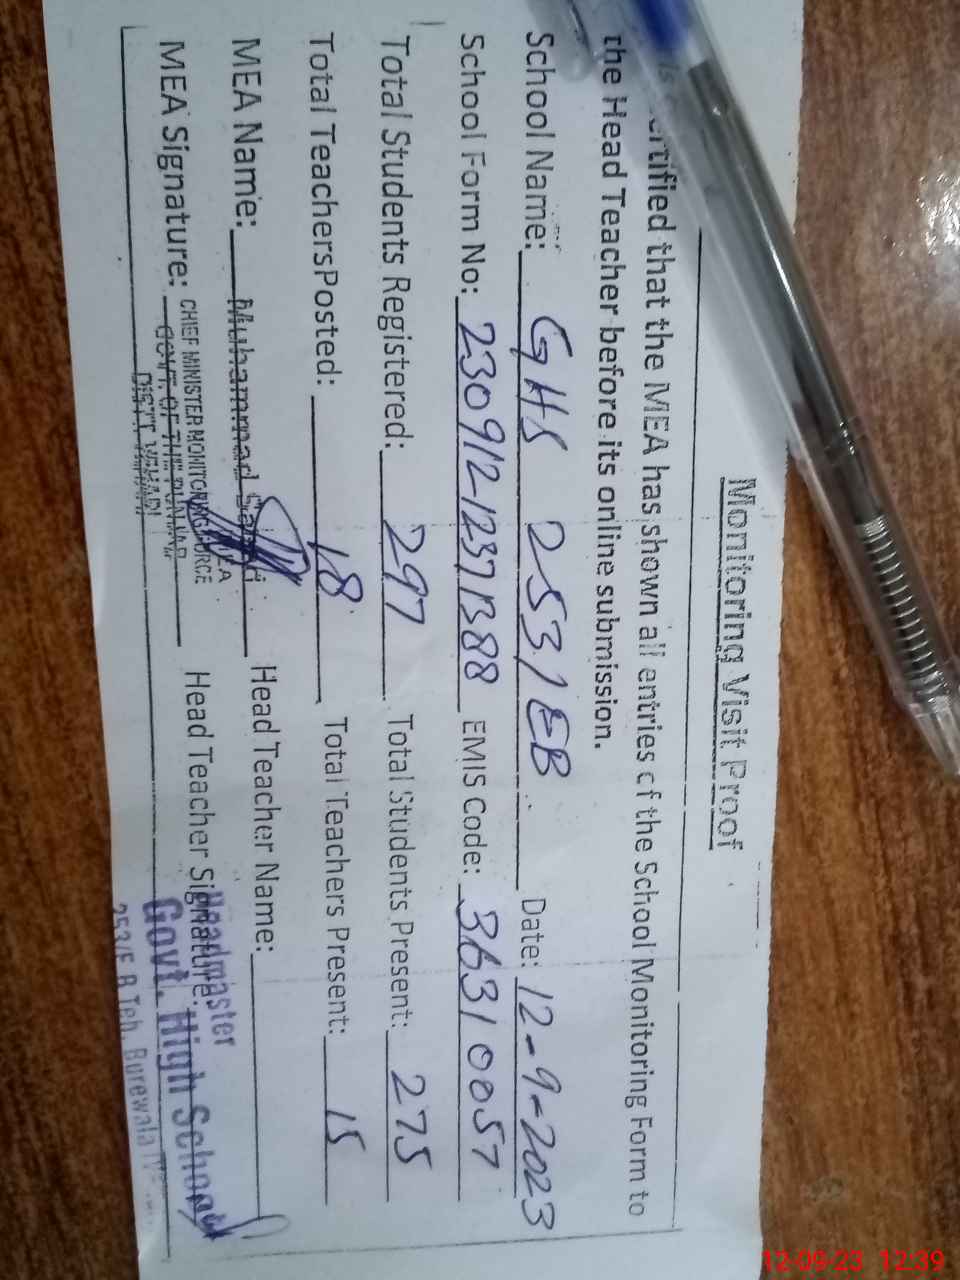 Monitoring Visit Proof
certified that the MEA has shown all entries of the School Monitoring Form to
the Head Teacher before its online submission.
School Name: GHS 253/EB Date: 12-9-2023
School Form No: 230912-12371388 EMIS Code: 36310057
Total Students Registered: 297 Total Students Present: 275
Total TeachersPosted: 18 Total Teachers Present: 15
MEA Name: Muhammad Head Teacher Name:
MEA Signature: Head Teacher Signature:
MEA
CHIEF MINISTER MONITORING FORCE
GOVT. OF THE PUNJAB
DISTT. VEHARI
Headmaster
Govt. High School
253/E.B Teh. Burewala
12-09-23 12:39